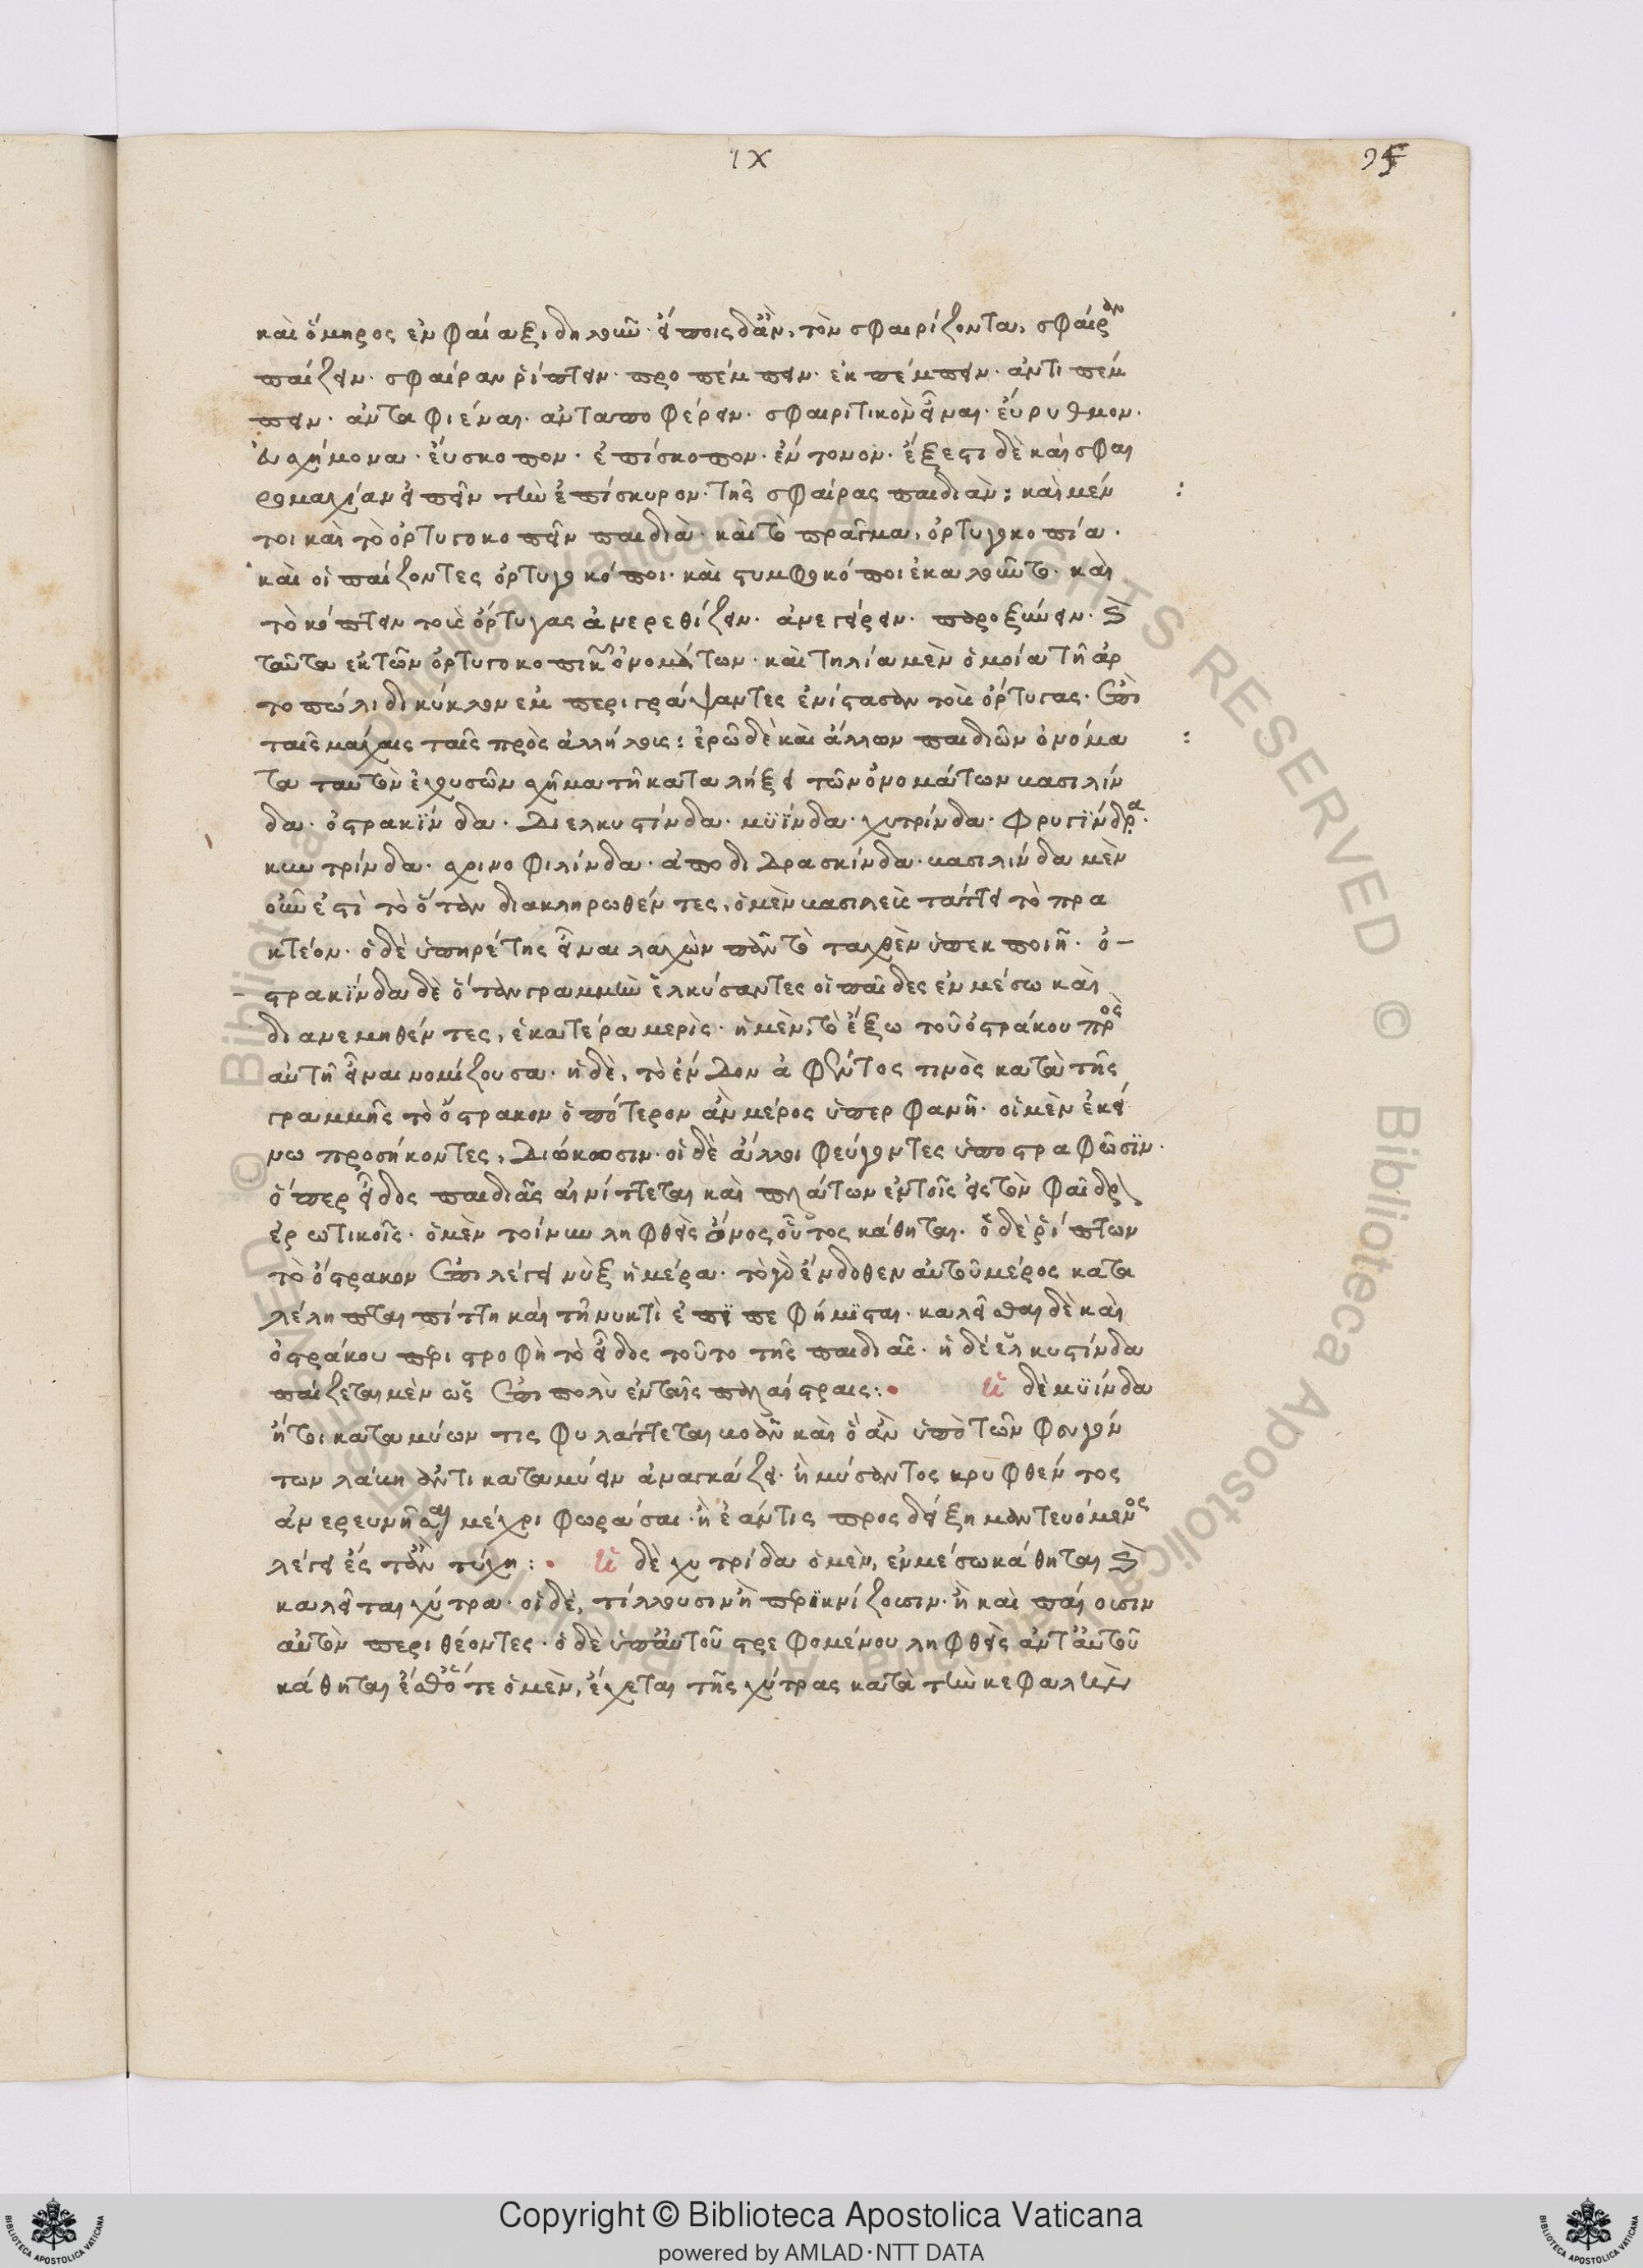 ΙΧ
καὶ ὅμηρος ἐν φαίαξι δηλοῦν. εἴποις δ' ἂν, τὸν σφαιρίζοντα, σφαῖραν
παίζειν. σφαῖραν ῥίπτειν. προπέμπειν. ἐκπέμπειν. ἀντιπέμ
πειν. ἀνταφιέναι. ἀνταποφέρειν. σφαιριτικὸν εἶναι. εὔρυθμον.
εὐσχήμονα. εὔσκοπον. ἐπίσκοπον. ἔντονον. ἔξεστι δὲ καὶ σφαι
ρομαχίαν εἰπεῖν τὴν ἐπίσκυρον. τῆς σφαίρας παιδιὰν: καὶ μέν
τοι καὶ τὸ ὀρτυγοκοπεῖν παιδιὰ. καὶ τὸ πρᾶγμα, ὀρτυγοκοπία.
καὶ οἱ παίζοντες ὀρτυγοκόποι. καὶ στυφοκόποι ἐκαλοῦντο. καὶ
τὸ κόπτειν τοὺς ὄρτυγας ἀνερεθίζειν. ἀνεγείρειν. παροξύνειν. καὶ
ταῦτα ἐκ τῶν ὀρτυγοκοπικῶν ὀνομάτων. καὶ τηλία μὲν ὁμοία τῇ ἀρ
τοπώλιδι κύκλον ἐμπεριγράψαντες ἐνίστασαν τοὺς ὄρτυγας. ἐπὶ
ταῖς μάχαις ταῖς πρὸς ἀλλήλοις: ἐρῶ δὲ καὶ ἄλλων παιδιῶν ὀνόμα
τα ταυτὸν ἐχουσῶν σχῆμα τῇ καταλήξει τῶν ὀνομάτων βασιλίν
δα. ὀστρακίνδα. διελκυστίνδα. μυΐνδα. χυτρίνδα. φρυγίνδα.
κυντρίνδα. σχινοφιλίνδα. ἀποδιδρασκίνδα. βασιλίνδα μὲν
οὖν ἐστὶ τὸ ὅταν διακληρωθέντες, ὁ μὲν βασιλεὺς τάττει τὸ πρα
κτέον. ὁ δὲ ὑπηρέτης εἶναι λαχὼν πᾶν τὸ ταχθὲν ὑπεκποιῇ. ὀ
στρακίνδα δὲ ὅταν γραμμὴν ἑλκύσαντες οἱ παῖδες ἐν μέσω καὶ
διανεμηθέντες, ἑκατέρα μερὶς. ἡ μὲν, τὸ ἔξω τοῦ ὀστράκου πρὸς
αὐτῆ εἶναι νομίζουσα. ἡ δὲ, τὸ ἔνδον ἀφέντος τινὸς κατὰ τῆς
γραμμῆς τὸ ὄστρακον ὁπότερον ἂν μέρος ὑπερφανῆ. οἱ μὲν ἐκεί
νω προσήκοντες, διώκωσιν. οἱ δὲ ἄλλοι φεύγοντες ὑποστραφῶσιν.
ὅπερ εἶδος παιδιᾶς αἰνίττεται καὶ πλάτων ἐν τοῖς εἰς τὸν φαῖδρον
ἐρωτικοῖς. ὁ μὲν τοίνυν ληφθεὶς ὄνος οὗτος κάθηται. ὁ δὲ ῥίπτων
τὸ ὄστρακον ἐπιλέγει νὺξ ἡμέρα. τὸ γὰρ ἔνδοθεν αὐτοῦ μέρος κατα
λέληπται πίττη καὶ τῇ νυκτὶ ἐπεὶ πεφήμισται. καλεῖσθαι δὲ καὶ
ὀστράκου περιστροφὴ τὸ εἶδος τοῦτο τῆς παιδιᾶς. ἡ δὲ ἑλκυστίνδα
παίζεται μὲν ὡς ἐπιπολὺ ἐν ταῖς παλαίστραις: ἡ δὲ μυΐνδα
ἤτοι καταμύων τις φυλάττεται βοῶν καὶ ὃ ἂν ὑπὸ τῶν φευγόν
των λάβη ἀντικαταμύειν ἀναγκάζει. ἢ μύσαντος κρυφθέντος
ἀνερευνᾶσθαι μέχρι φωράσαι. ἢ ἐάν τις προσδείξη μαντευόμενος
λέγει ἔς τ' ἂν τύχη: ἡ δὲ χυτρίδα ὁ μὲν, ἐν μέσω κάθηται καὶ
καλεῖται χύτρα. οἱ δὲ, τίλλουσιν ἢ περικνίζουσιν. ἢ καὶ παίουσιν
αὐτὸν περιθέοντες. ὁ δὲ ὑπ' αὐτοῦ στρεφομένου ληφθεὶς ἀντ' αὐτοῦ
κάθηται ἔσθ' ὅτε ὁ μὲν, ἔχεται τῆς χύτρας κατὰ τὴν κεφαλὴν
Copyright © Biblioteca Apostolica Vaticana
powered by AMLAD·NTT DATA